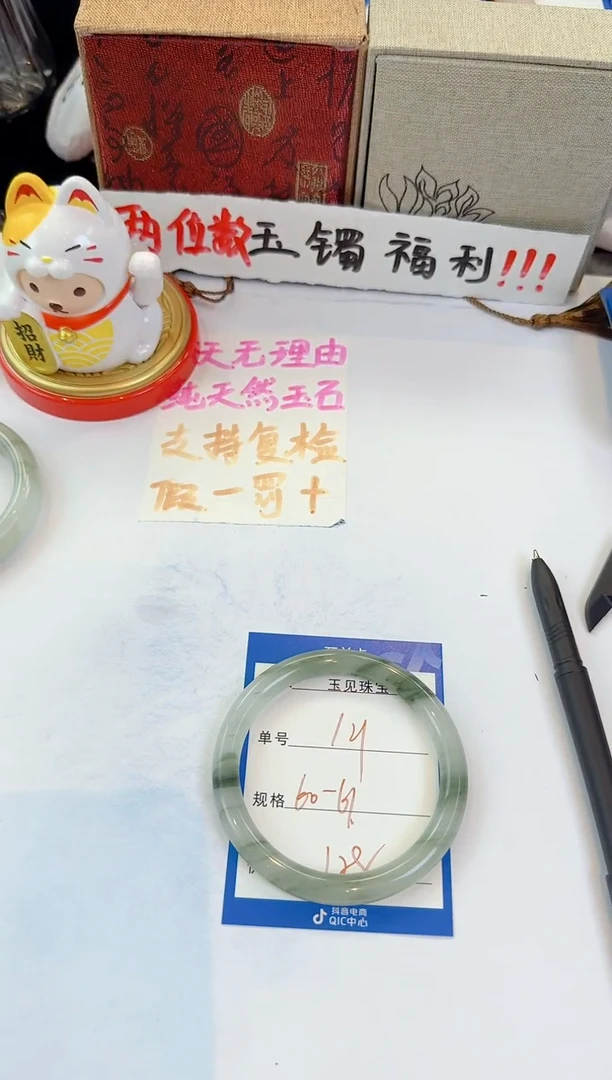 两位数玉镯福利!!!
招财
天无理由
纯天然玉石
支持复检
假一罚十
玉见珠宝
单号 14
规格 60-61
128
抖音电商
QIC中心